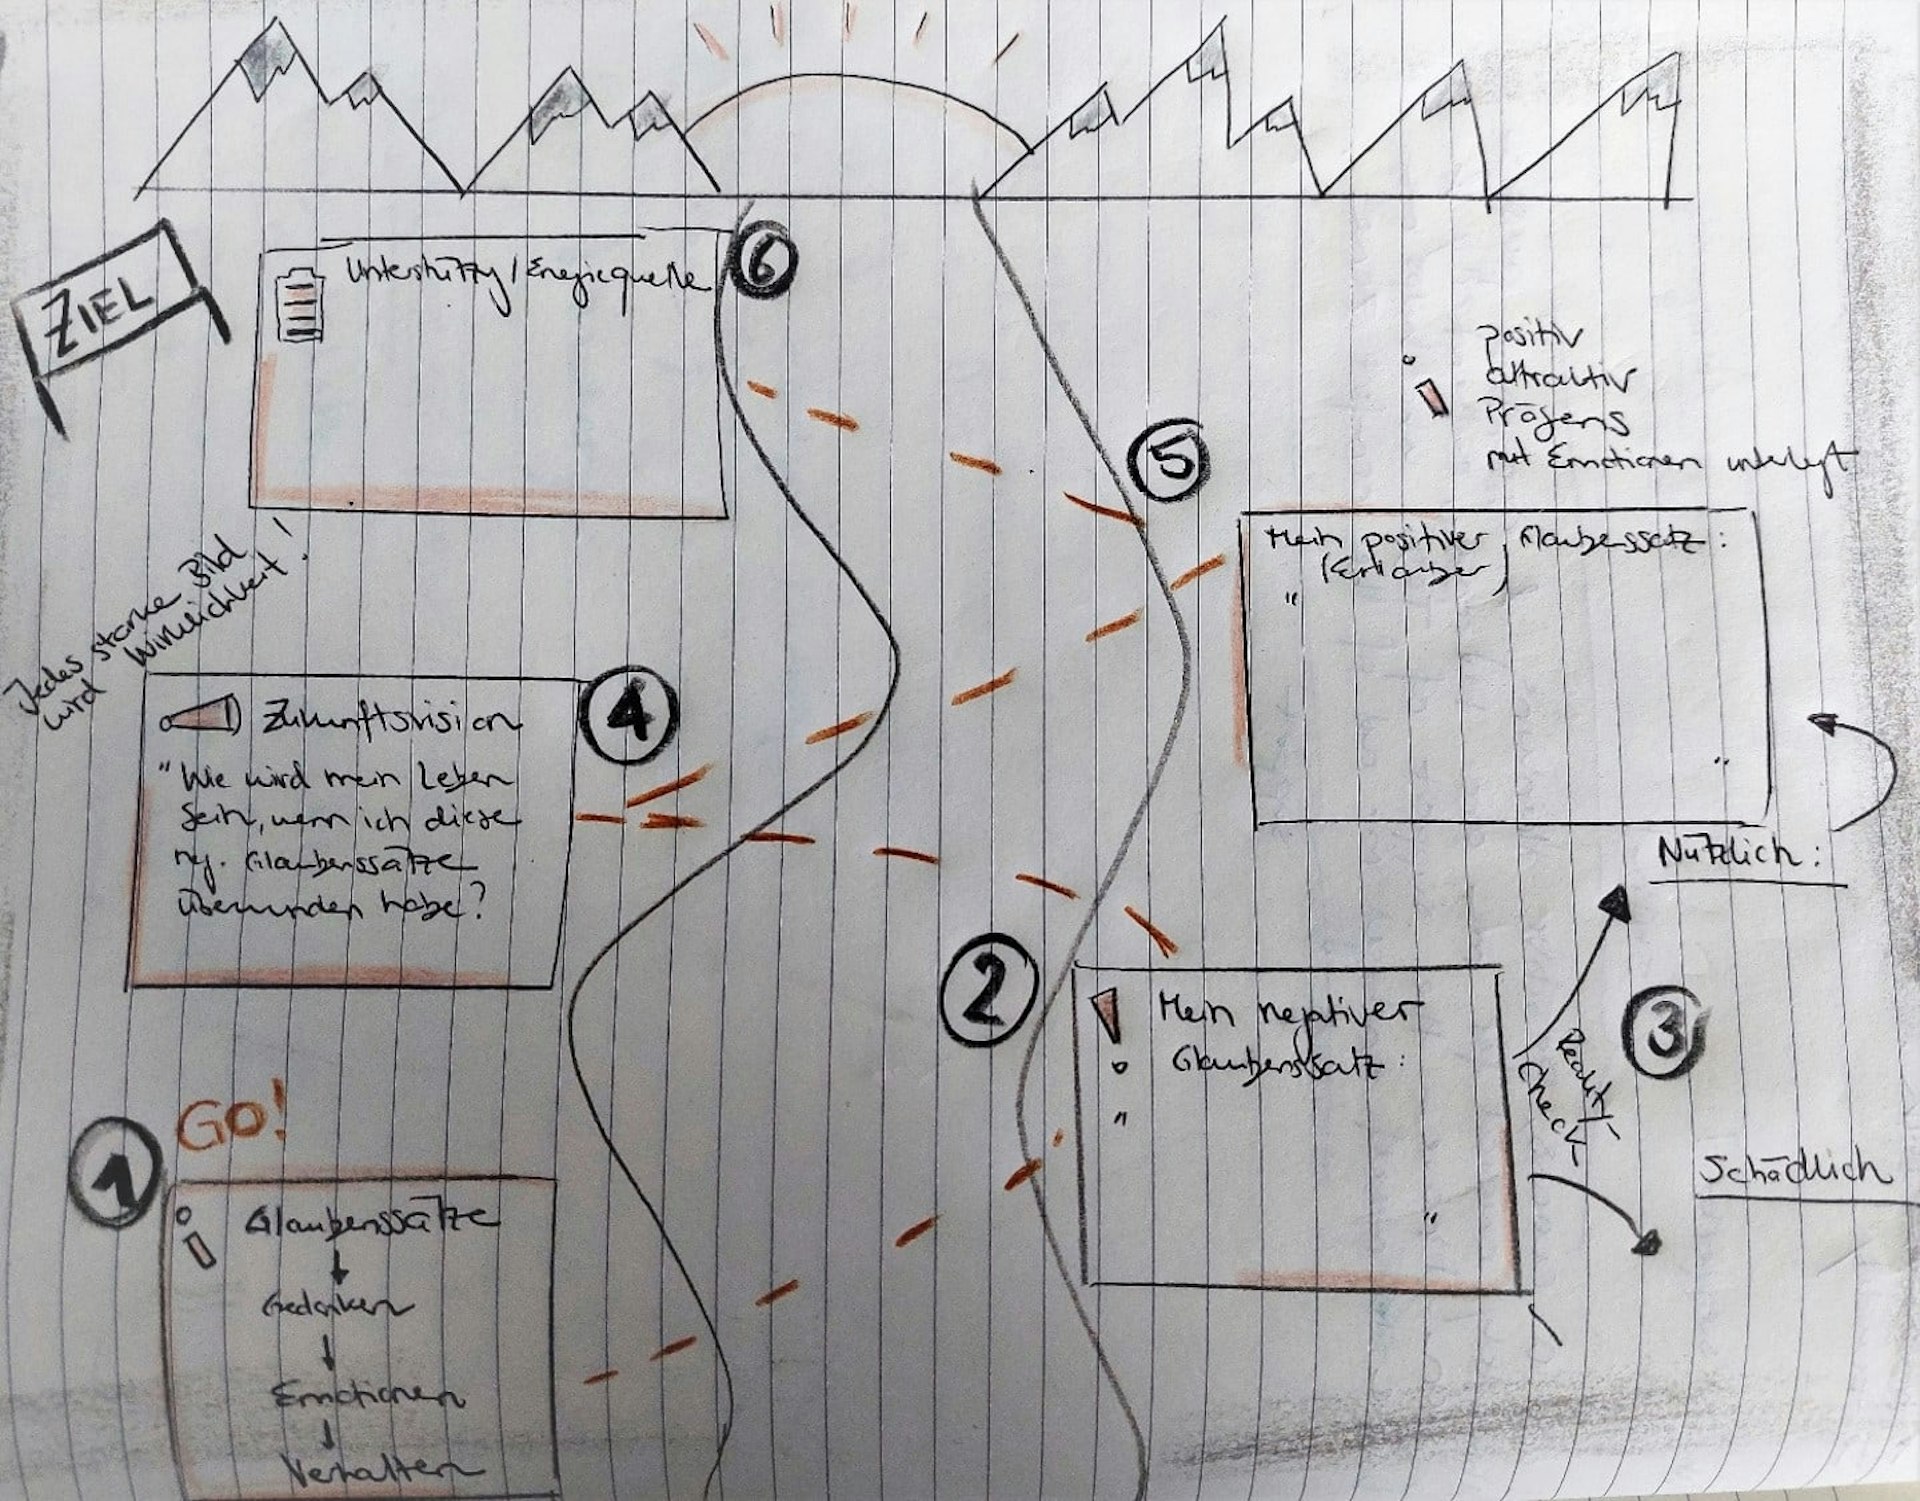 ZIEL
6
Unterstützg / Energiequelle
5
positiv
attraktiv
Präsens
mit Emotionen unterlegt
Mein positiver Glaubenssatz:
(Erlauber)
"
"
Jedes starke Bild
wird Wirklichkeit!
4
Zukunftsvision
"Wie wird mein Leben
sein, wenn ich diese
neg. Glaubenssätze
überwunden habe?
Nützlich:
2
! Mein negativer
Glaubenssatz:
"
"
3
Realit.-
Check
Schädlich
1
GO!
i Glaubenssätze
↓
Gedanken
↓
Emotionen
↓
Verhalten